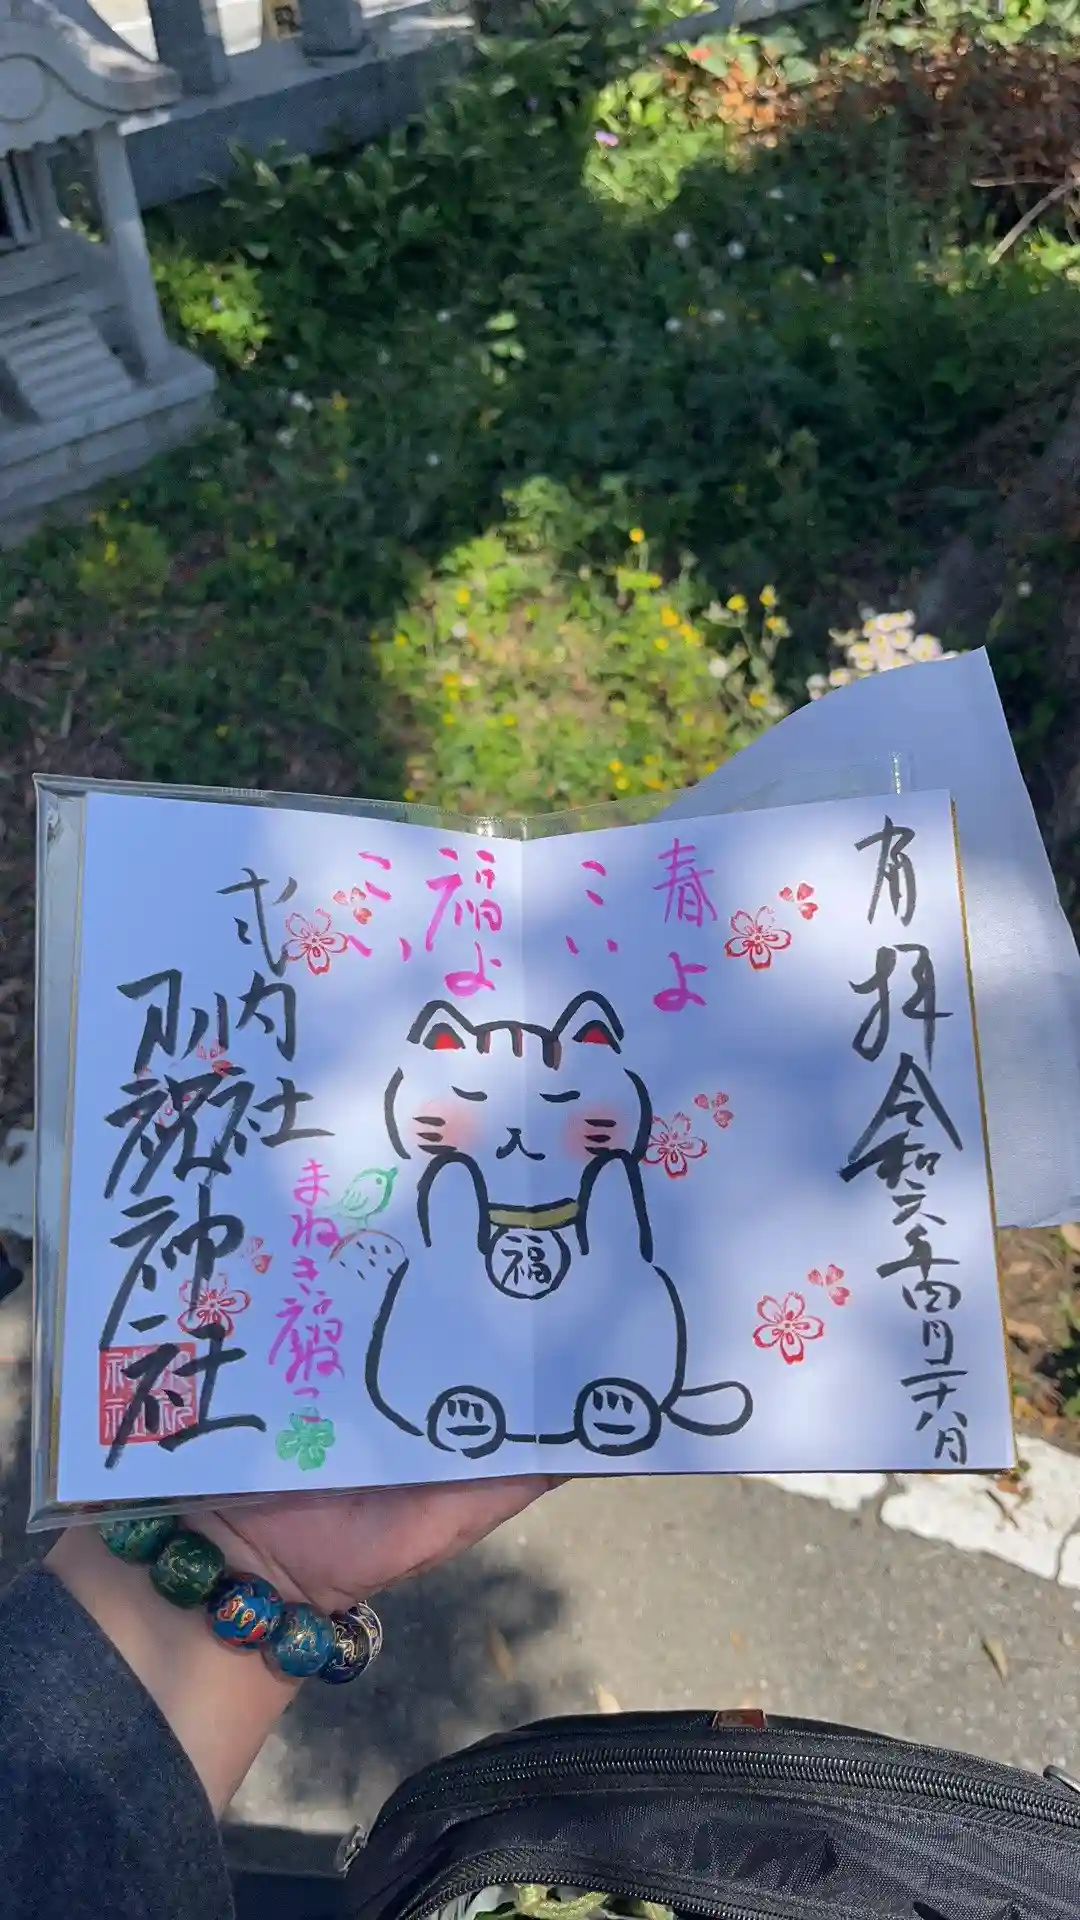 奉拝
令和六年四月二十八日
春よ
こい
福よ
こい
福
式内社
別祝神社
まねき福ねこ